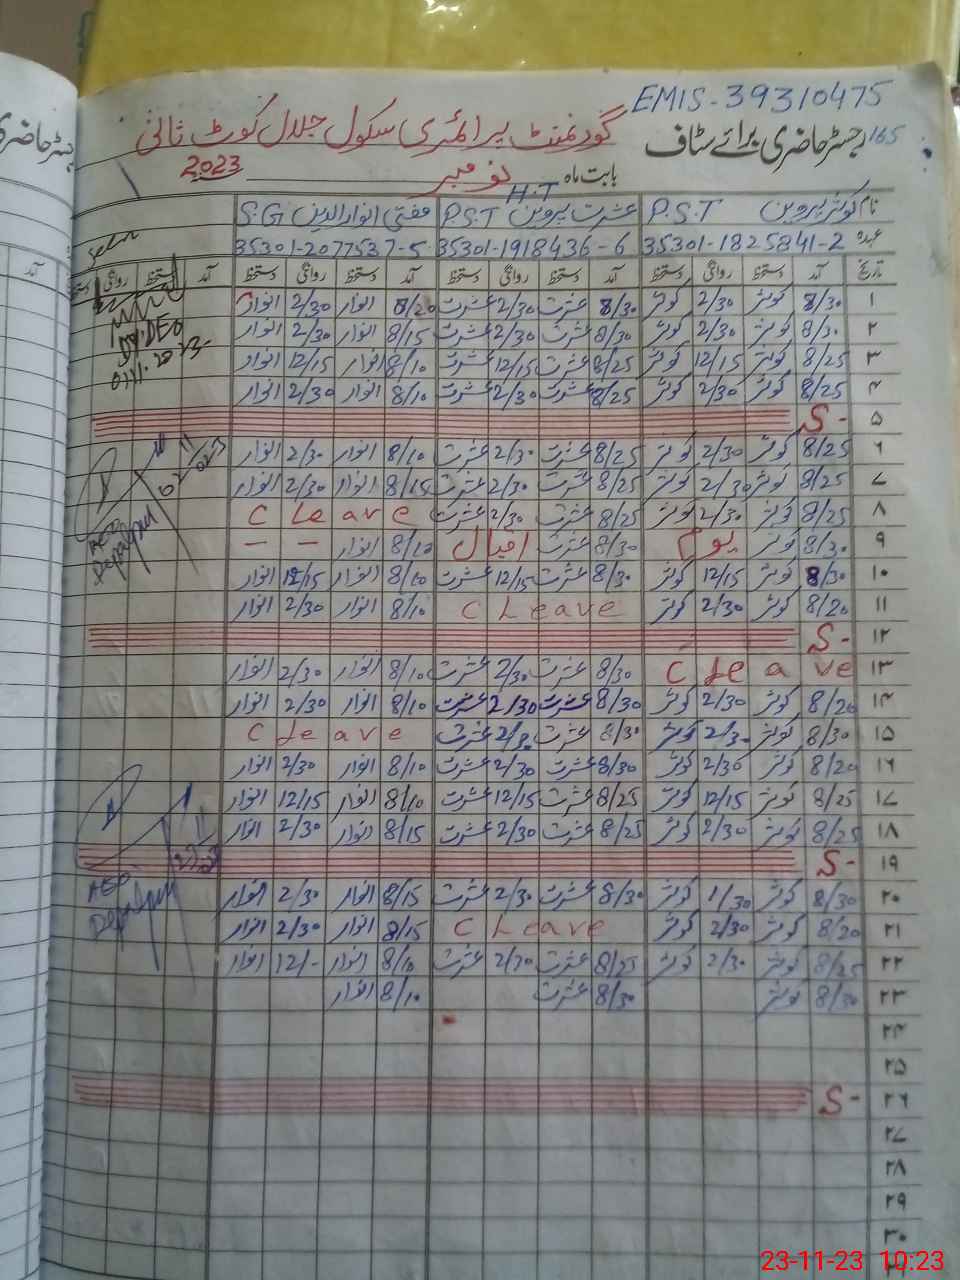 EMIS-39310475
رجسٹر حاضری برائے سٹاف 165
گورنمنٹ پرائمری سکول جلال کوٹ ثانی
بابت ماہ نومبر 2023
H.T
نام کوثر پروین P.S.T عشرت پروین P.S.T مفتی انوار الدین S.G
عہدہ 35301-1825841-2 35301-1918436-6 35301-2077537-5
تاریخ آمد دستخط روانگی دستخط آمد دستخط روانگی دستخط آمد دستخط روانگی دستخط آمد دستخط روانگی دستخط
۱ 8/30 کوثر 2/30 کوثر 8/30 عشرت 2/30 عشرت 8/20 انوار 2/30 انوار
۲ 8/30 کوثر 2/30 کوثر 8/30 عشرت 2/30 عشرت 8/15 انوار 2/30 انوار
۳ 8/25 کوثر 12/15 کوثر 8/25 عشرت 12/15 عشرت 8/10 انوار 12/15 انوار
۴ 8/25 کوثر 2/30 کوثر 8/25 عشرت 2/30 عشرت 8/10 انوار 2/30 انوار
۵ S-
۶ 8/25 کوثر 2/30 کوثر 8/25 عشرت 2/30 عشرت 8/10 انوار 2/30 انوار
۷ 8/25 کوثر 2/30 کوثر 8/25 عشرت 2/30 عشرت 8/15 انوار 2/30 انوار
۸ 8/25 کوثر 2/30 کوثر 8/25 عشرت 2/30 عشرت C Leave
۹ 8/30 کوثر یوم 8/30 عشرت اقبال 8/10 انوار - -
۱۰ 8/30 کوثر 12/15 کوثر 8/30 عشرت 12/15 عشرت 8/10 انوار 12/15 انوار
۱۱ 8/20 کوثر 2/30 کوثر C Leave 8/10 انوار 2/30 انوار
۱۲ S-
۱۳ C Leave 8/30 عشرت 2/30 عشرت 8/10 انوار 2/30 انوار
۱۴ 8/20 کوثر 2/30 کوثر 8/30 عشرت 2/30 عشرت 8/10 انوار 2/30 انوار
۱۵ 8/30 کوثر 2/30 کوثر 8/30 عشرت 2/30 عشرت C Leave
۱۶ 8/20 کوثر 2/30 کوثر 8/30 عشرت 2/30 عشرت 8/10 انوار 2/30 انوار
۱۷ 8/25 کوثر 12/15 کوثر 8/25 عشرت 12/15 عشرت 8/10 انوار 12/15 انوار
۱۸ 8/25 کوثر 2/30 کوثر 8/25 عشرت 2/30 عشرت 8/15 انوار 2/30 انوار
۱۹ S-
۲۰ 8/30 کوثر 1/30 کوثر 8/30 عشرت 2/30 عشرت 8/15 انوار 2/30 انوار
۲۱ 8/20 کوثر 2/30 کوثر C Leave 8/15 انوار 2/30 انوار
۲۲ 8/25 کوثر 2/30 کوثر 8/25 عشرت 2/30 عشرت 8/10 انوار 12/- انوار
۲۳ 8/30 کوثر 8/30 عشرت 8/10 انوار
۲۴
۲۵
۲۶ S-
۲۷
۲۸
۲۹
۳۰
Dy.DEO
AEO
Depalpur
AEO
Depalpur
23-11-23 10:23